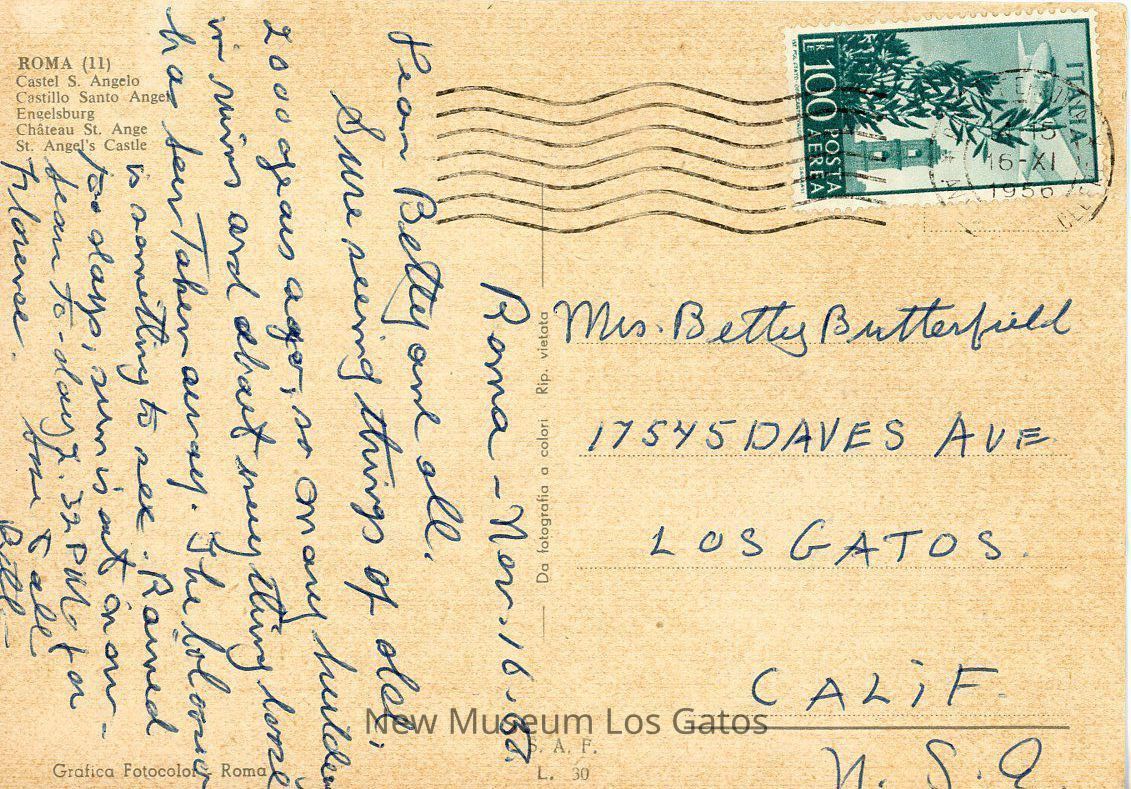 ROMA (11)
Castel S. Angelo
Castillo Santo Angel
Engelsburg
Château St. Ange
St. Angel's Castle
Roma - Nov. 16.
Dear Betty and all.
Sure seeing things of old,
2000 years ago, so many
in ruins and about every thing loose
has been taken away. The
is something to see. Rained
two days, sun is out now -
to-day 2.32 PM for
Florence. Love to all
Bill -
Da fotografia a colori Rip. vietata
Grafica Fotocolor - Roma
S. A. F.
L. 30
ITALIA
LIRE 100 POSTA AEREA
15
16-XI
1956
Mrs. Betty Butterfield
17545 DAVES AVE
LOS GATOS.
CALIF.
U.S.A
New Museum Los Gatos